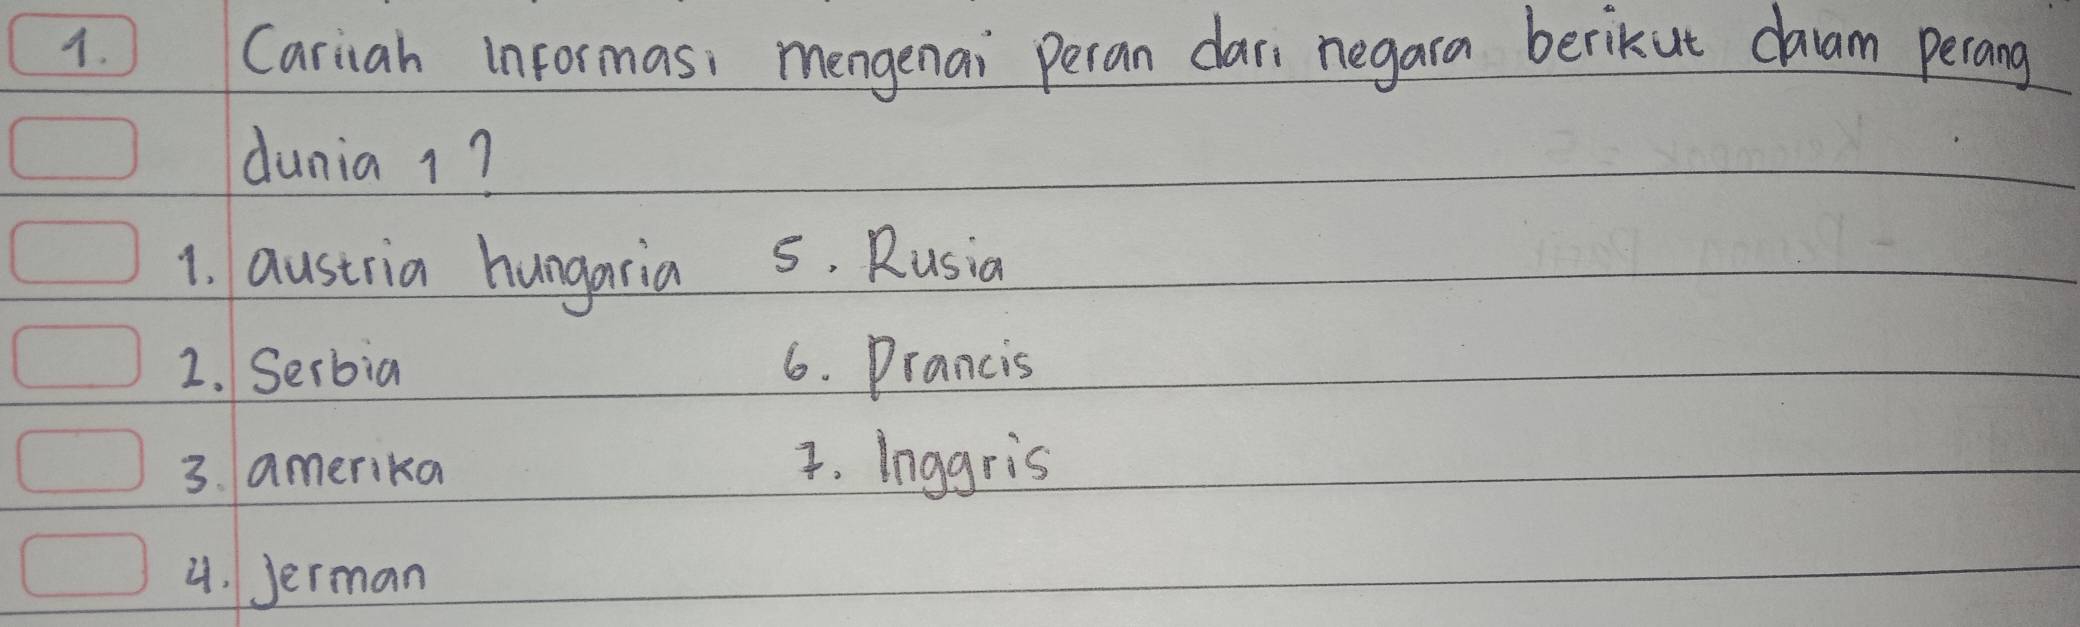 1. Carilah informasi mengenai peran dari negara berikut dalam perang
dunia 1?
1. austria hungaria 5. Rusia
2. Serbia 6. Prancis
3. amerika 7. Inggris
4. Jerman